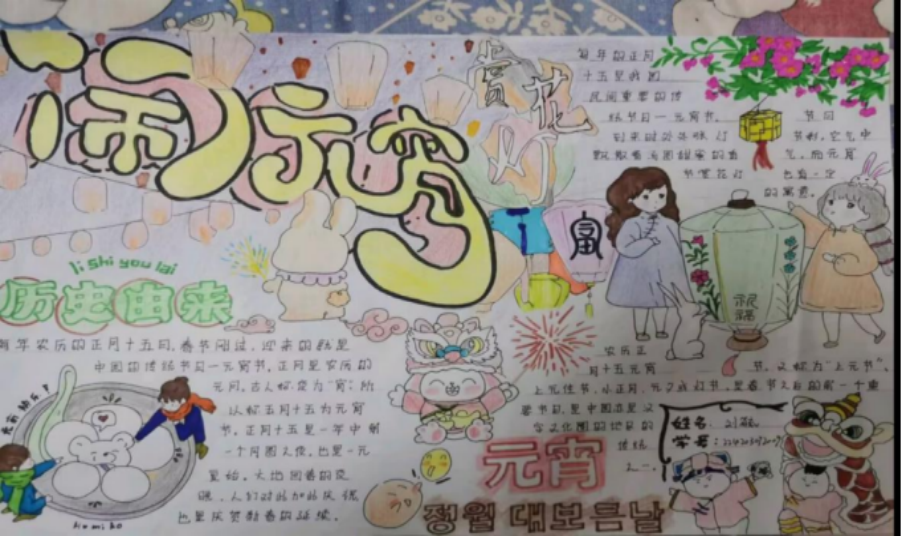 闹元宵
赏花灯
每年的正月
十五是我国
民间重要的传
统节日一元宵节。
节日
到来时处处张灯
节彩，空气中
飘散着汤圆甜蜜的香
气，而元宵
节赏花灯
也有一定
的寓意。
富
祝福
li shi you lai
历史由来
每年农历的正月十五日，春节刚过，迎来的就是
中国的传统节日一元宵节。正月是农历的
元月，古人称夜为"宵"，所
以称正月十五为元宵
节。正月十五是一年中第
一个月圆之夜，也是一元
复始，大地回春的夜
晚，人们对此加以庆祝
也是庆贺新春的延续。
农历正
月十五元宵
节，又称为"上元节"、
上元佳节、小正月、元夕或灯节，是春节之后的第一个重
要节日，是中国亦是汉
字文化圈的地区的
传统
之一。
姓名：
学号：
元宵
정월 대보름날